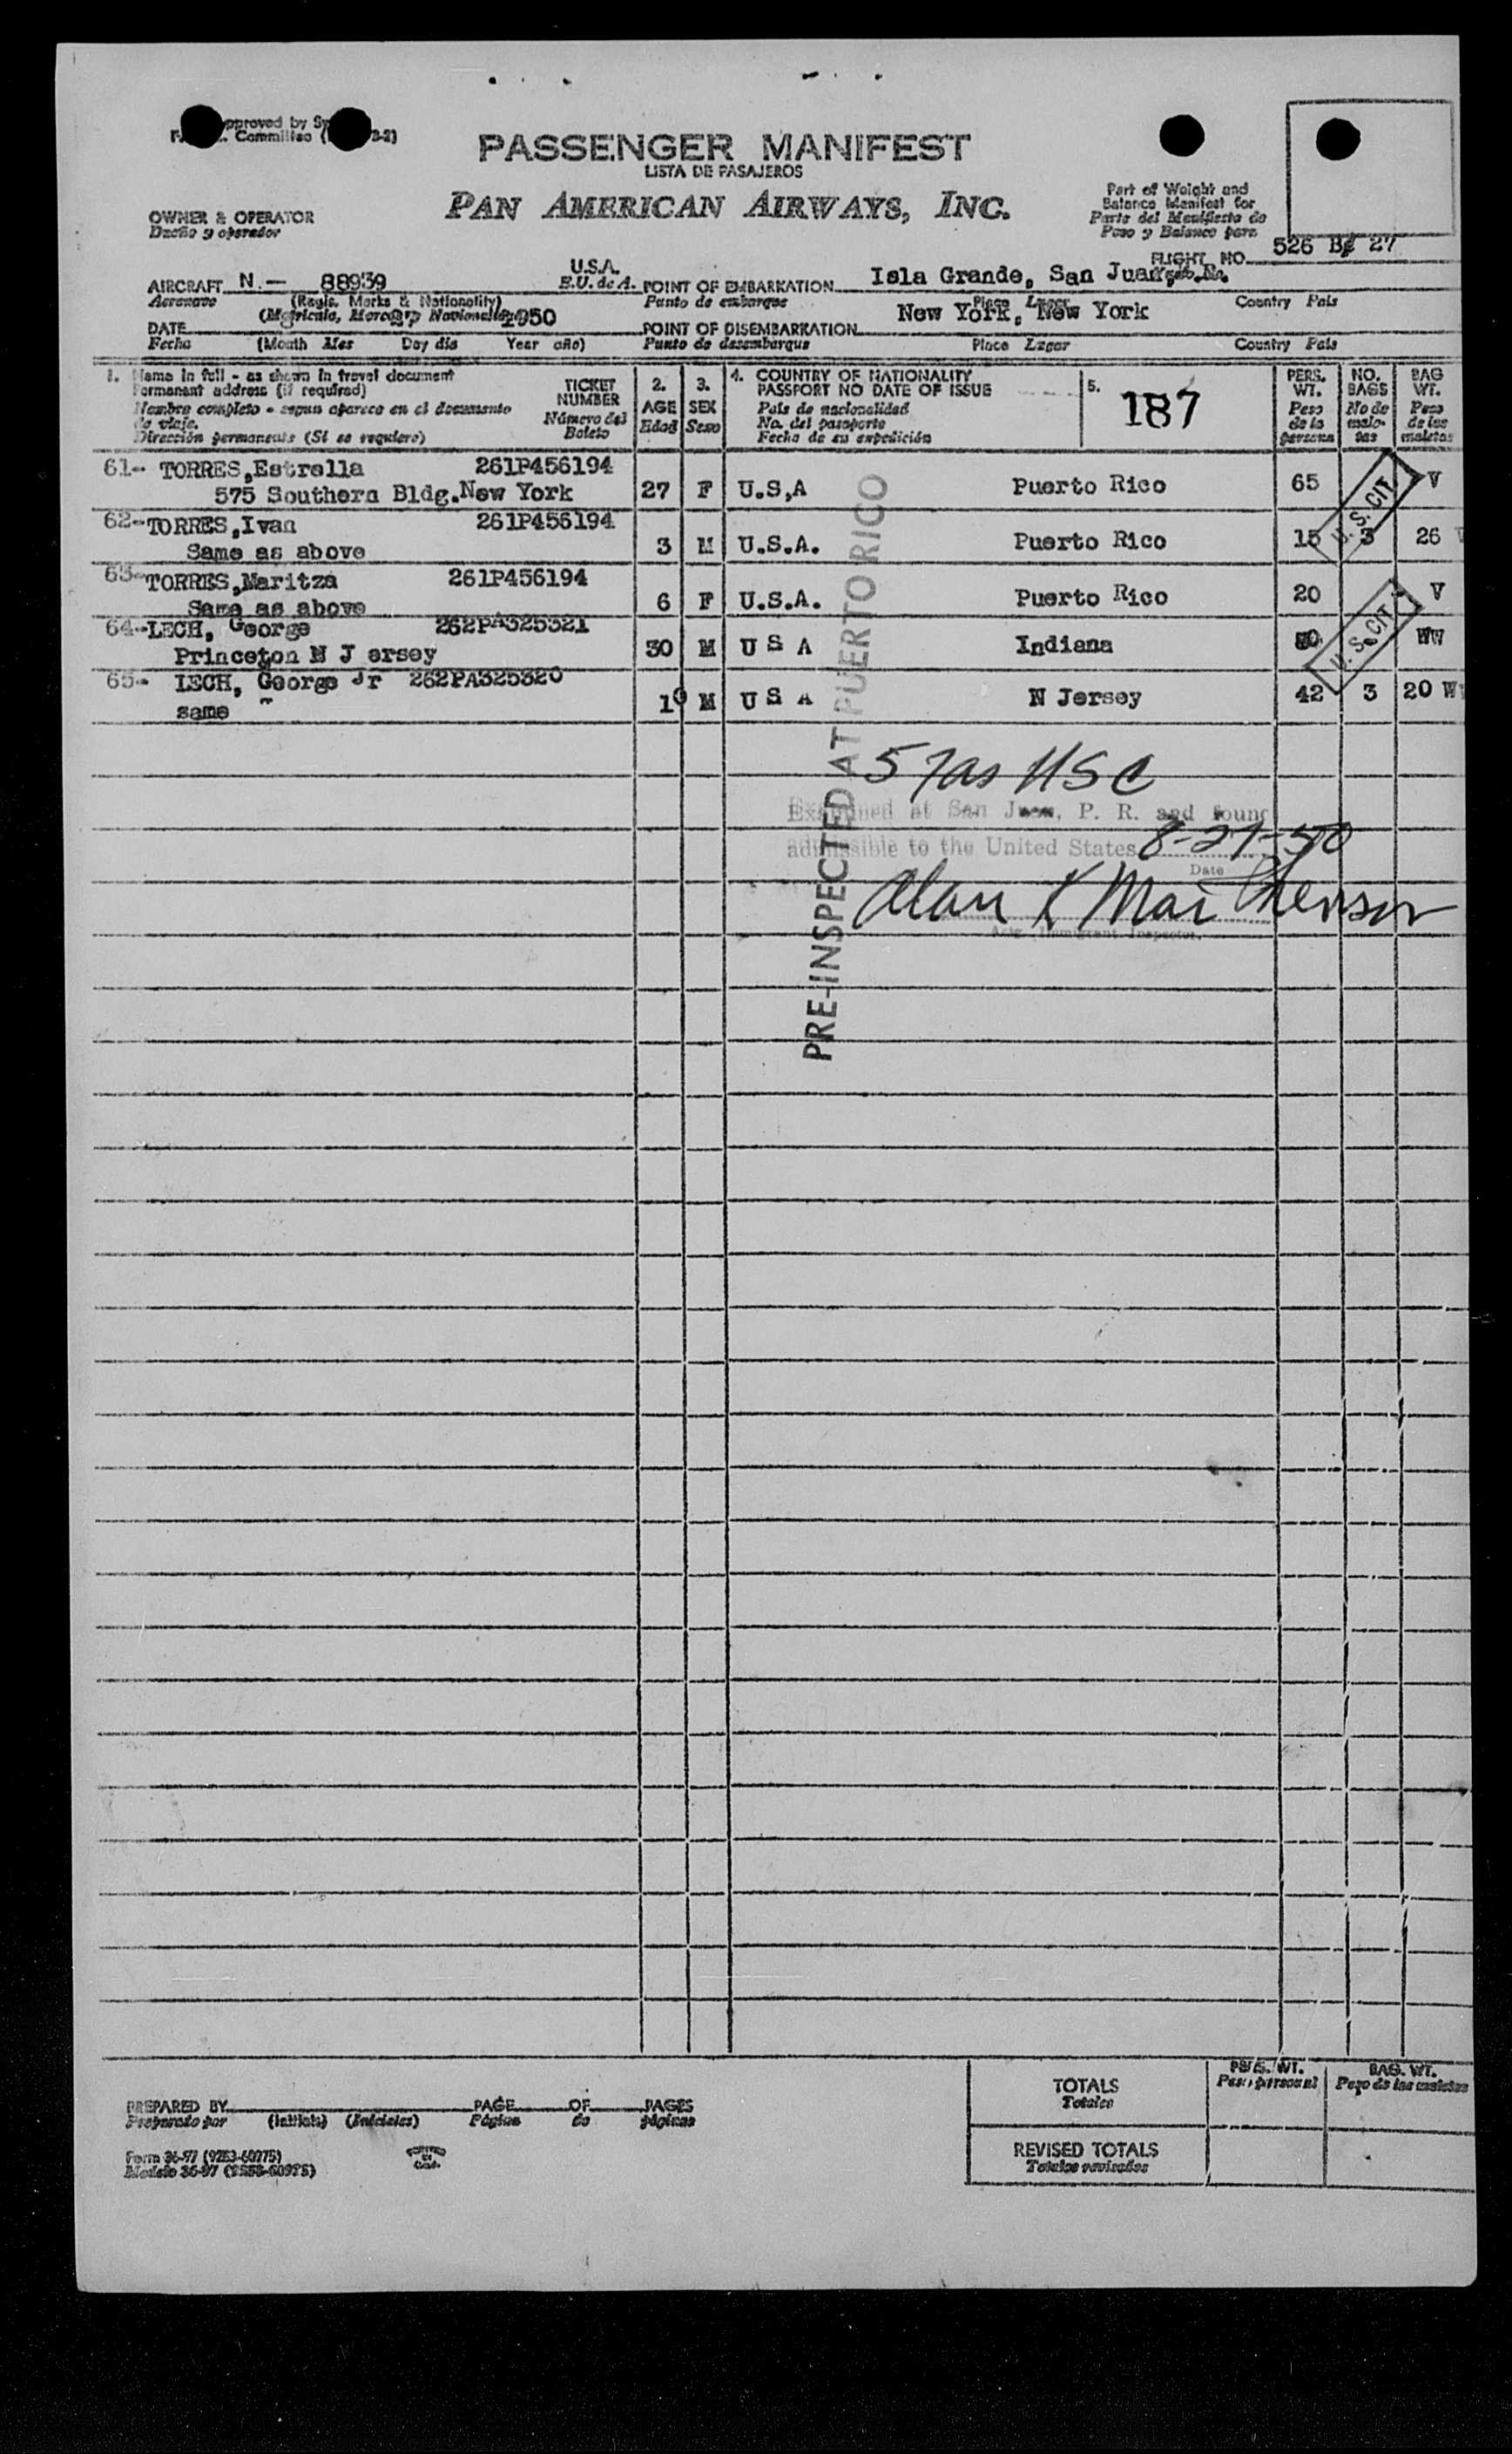 PASSENGER MANIFEST
LISTA DE PASAJEROS
PAN AMERICAN AIRWAYS, INC.
OWNER & OPERATOR
Dueño y operador
Part of Weight and
Balance Manifest for
Parte del Manifiesto de
Peso y Balance para
FLIGHT NO. 526 27
AIRCRAFT N.— 88939 U.S.A.
Aeronave E.U. de A.
(Regis. Marks & Nationality)
POINT OF EMBARKATION Isla Grande, San Juan,
Punto de embarque Place Lugar Country País
DATE 1950
Fecha (Month Mes Day día Year año)
POINT OF DISEMBARKATION New York, New York
Punto de desembarque Place Lugar Country País
1. Name in full - as shown in travel document
Permanent address (if required)
Nombre completo - segun aparece en el documento
de viaje.
Dirección permanente (Si se requiere)
TICKET
NUMBER
Número del
Boleto
2.
AGE
Edad
3.
SEX
Sexo
4. COUNTRY OF NATIONALITY
PASSPORT NO DATE OF ISSUE
País de nacionalidad
No. del pasaporte
Fecha de su expedición
5. 187
PERS.
WT.
Peso
de la
persona
NO.
BAGS
No de
male-
tas
BAG
WT.
Peso
de las
maletas
61- TORRES,Estrella 261P456194
575 Southern Bldg.New York 27 F U.S,A Puerto Rico 65 V
62-TORRES,Ivan 261P456194
Same as above 3 M U.S.A. Puerto Rico 15 3 26
63-TORRES,Maritza 261P456194
Same as above 6 F U.S.A. Puerto Rico 20 V
64-LECH, George 262PA325321
Princeton N J ersey 30 M U S A Indiana WW
65- LECH, George Jr 262PA325320
same " 10 M U S A N Jersey 42 3 20 W
U. S. CIT.
U. S. CIT.
PRE-INSPECTED AT PUERTO RICO
5 USC
Examined at San Juan, P. R. and found
admissible to the United States 8-27-50
Date
Alan K
Actg. Immigrant Inspector.
TOTALS
Totales
PERS. WT.
Peso personal
BAG. WT.
Peso de las maletas
REVISED TOTALS
Totales revisados
PREPARED BY PAGE OF PAGES
Preparado por (Initials) (Iniciales) Página de páginas
Form 36-97 (9253-60975)
Modelo 36-97 (9253-60975)